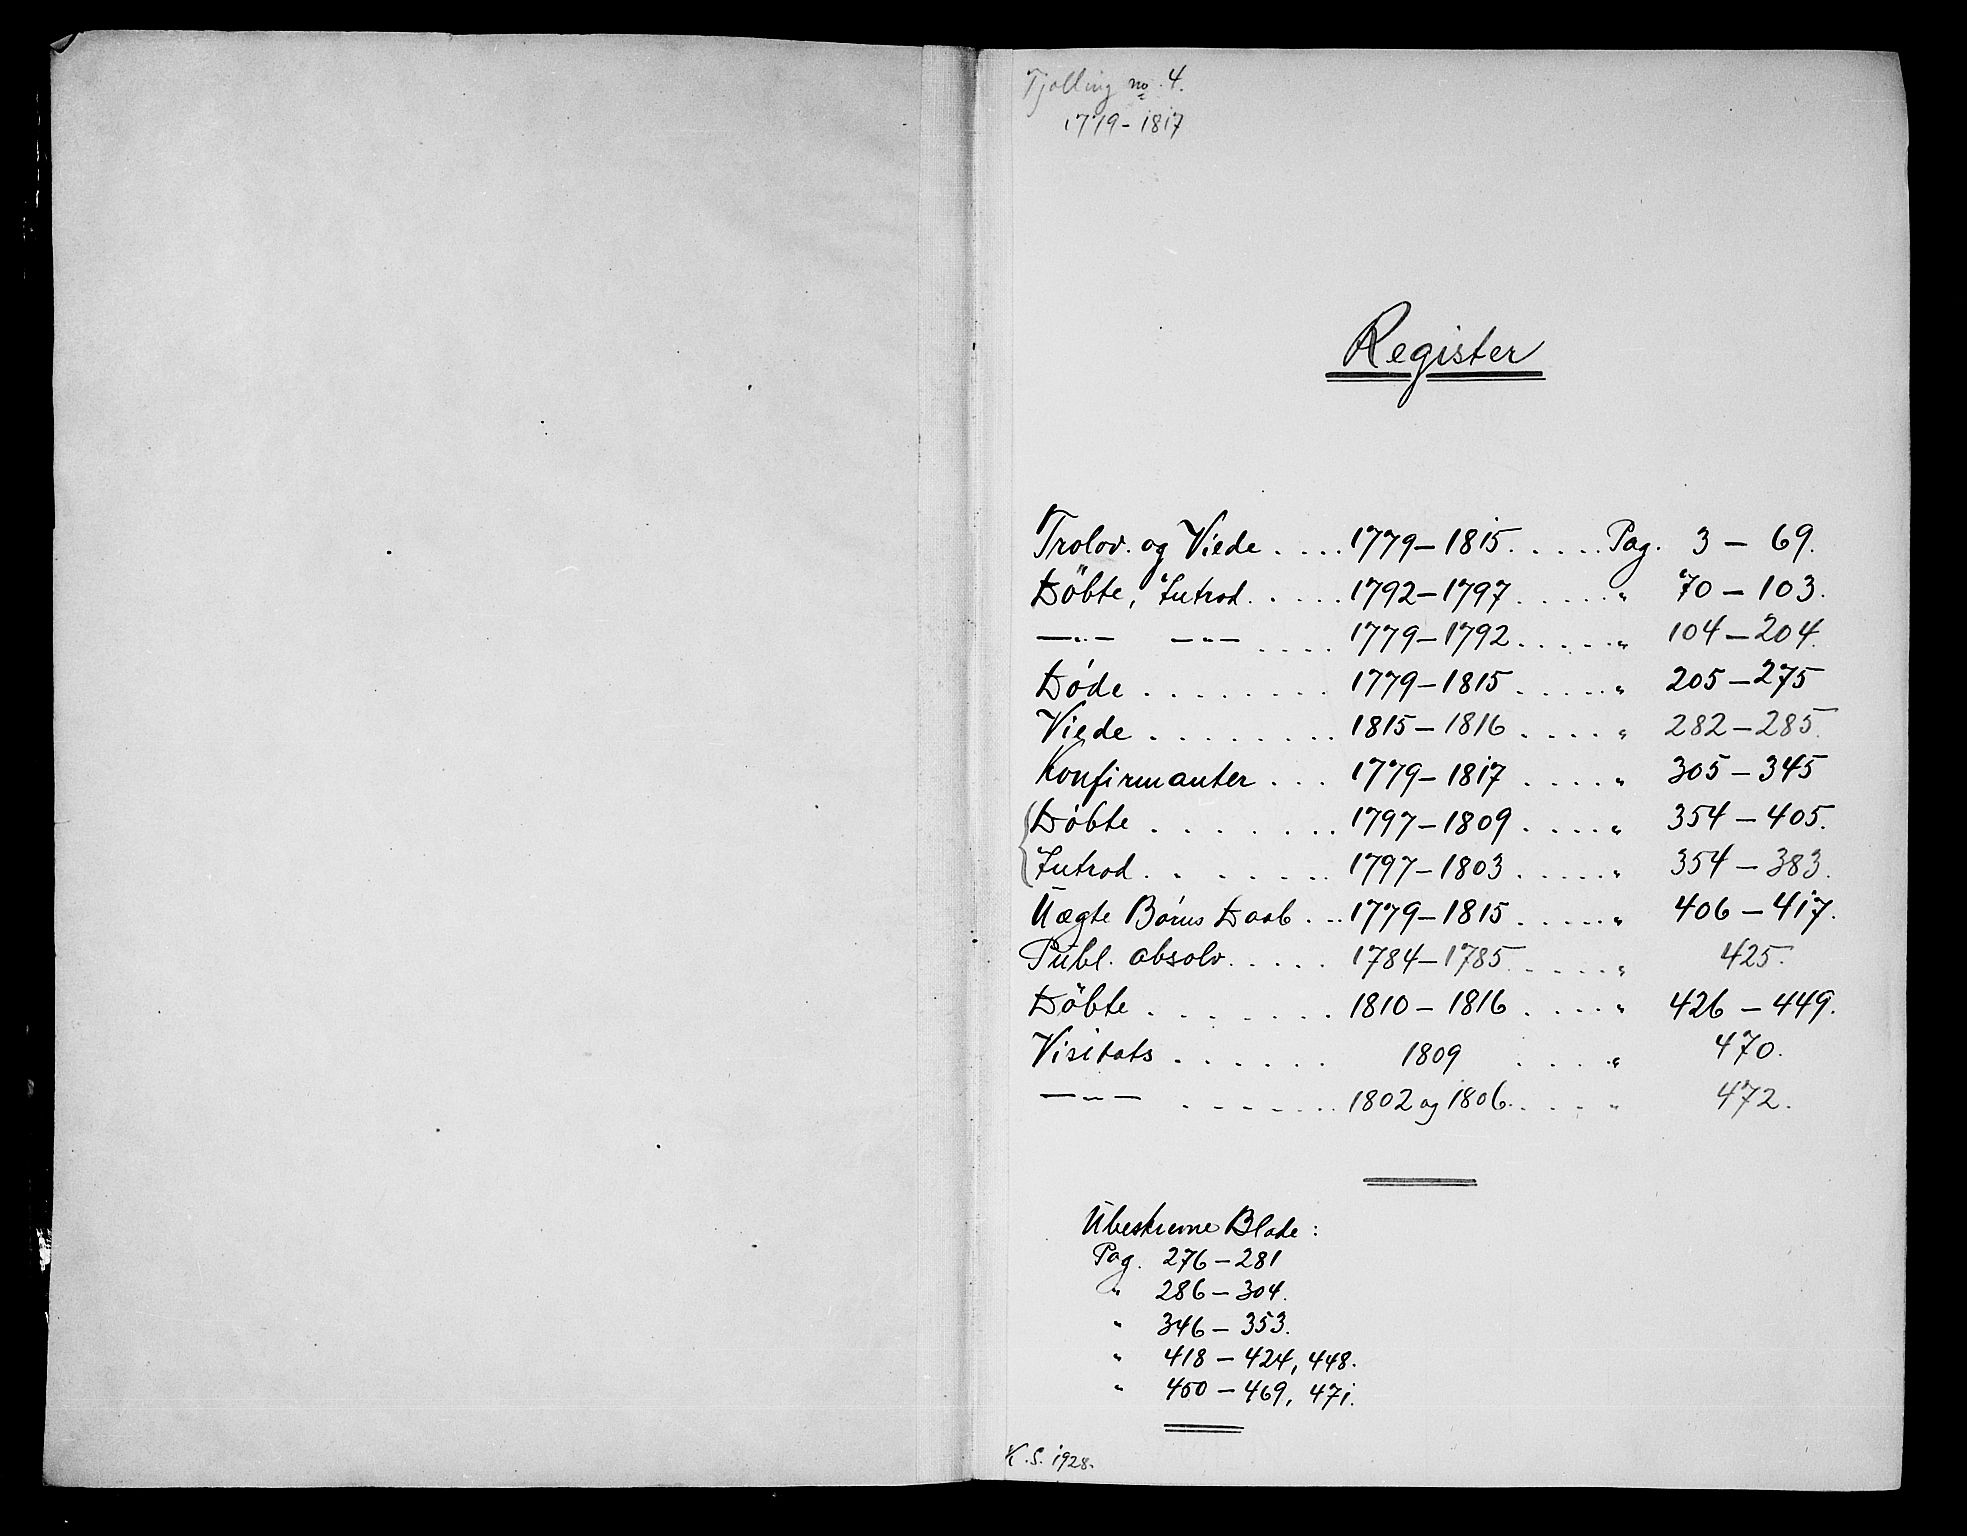 Tjølling no 4.
1779-1817
Register
Trolov. og Viede .... 1779-1815 ..... Pag. 3 - 69.
Döbte, Introd. .... 1792-1797 ..... " 70 - 103.
—"— —"— .... 1779-1792 ..... " 104 - 204.
Døde ........ 1779-1815 ..... " 205 - 275
Viede ........ 1815-1816 ..... " 282 - 285.
Konfirmanter ... 1779-1817 .... " 305 - 345
Döbte ....... 1797-1809 .... " 354 - 405.
Introd ....... 1797-1803 ..... " 354 - 383.
Uægte Børns Daab ... 1779-1815 ..... " 406 - 417.
Publ. absolv ..... 1784-1785 ..... " 425.
Döbte ....... 1810-1816 .... " 426 - 449.
Visitats ...... 1809 .... " 470.
—"— ....... 1802 og 1806 .... " 472.
Ubeskrevne Blade :
Pag. 276 - 281
" 286 - 304.
" 346 - 353.
" 418 - 424, 448.
" 450 - 469, 471.
K.S. 1928.